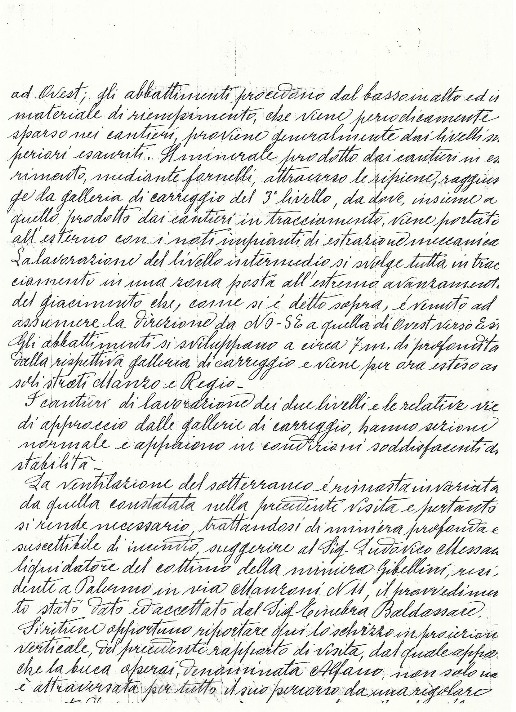 ad Ovest; gli abbattimenti procedono dal basso in alto ed il
materiale di riempimento, che viene periodicamente
sparso nei cantieri, proviene generalmente dai livelli su
periori esauriti. Il minerale prodotto dai cantieri in es
rimento, mediante fornelli, attraverso le ripiene, raggiun
ge la galleria di carreggio del 3° livello, da dove, insieme a
quello prodotto dai cantieri in tracciamento, viene portato
all'esterno con i noti impianti di estrazione meccanica
La lavorazione del livello intermedio si svolge tutta in trac
ciamento in una zona posta all'estremo avanzamento
del giacimento che, come si è detto sopra, è venuto ad
assumere la direzione da NO-SE a quella di Ovest verso Est
Gli abbattimenti si sviluppano a circa 7 m. di profondità
dalla rispettiva galleria di carreggio e viene per ora esteso ai
soli strati Manzo e Regio.-
I cantieri di lavorazione dei due livelli e le relative vie
di approccio dalle gallerie di carreggio, hanno sezioni
normale e appaiono in condizioni soddisfacenti di
stabilità.-
La ventilazione del sotterraneo è rimasta invariata
da quella constatata nella precedente visita e pertanto
si rende necessario, trattandosi di miniera profonda e
suscettibile di incendio, suggerire al Sig. Ludovico Messan
liquidatore del cottimo della miniera Gibellini, resi
dente a Palermo in via Manzoni N 11, il provvedimen
to stato dato ed accettato dal Sig. Ginebra Baldassare.
Si ritiene opportuno riportare qui lo schizzo in proiezion
verticale, del precedente rapporto di visita, dal quale appa
che la buca operai, denominata Alfano, non solo ne
è attraversata per tutto il suo percorso da una rigolare